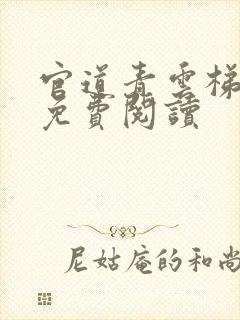 官道青雲梯
免費閱讀
尼姑庵的和尚